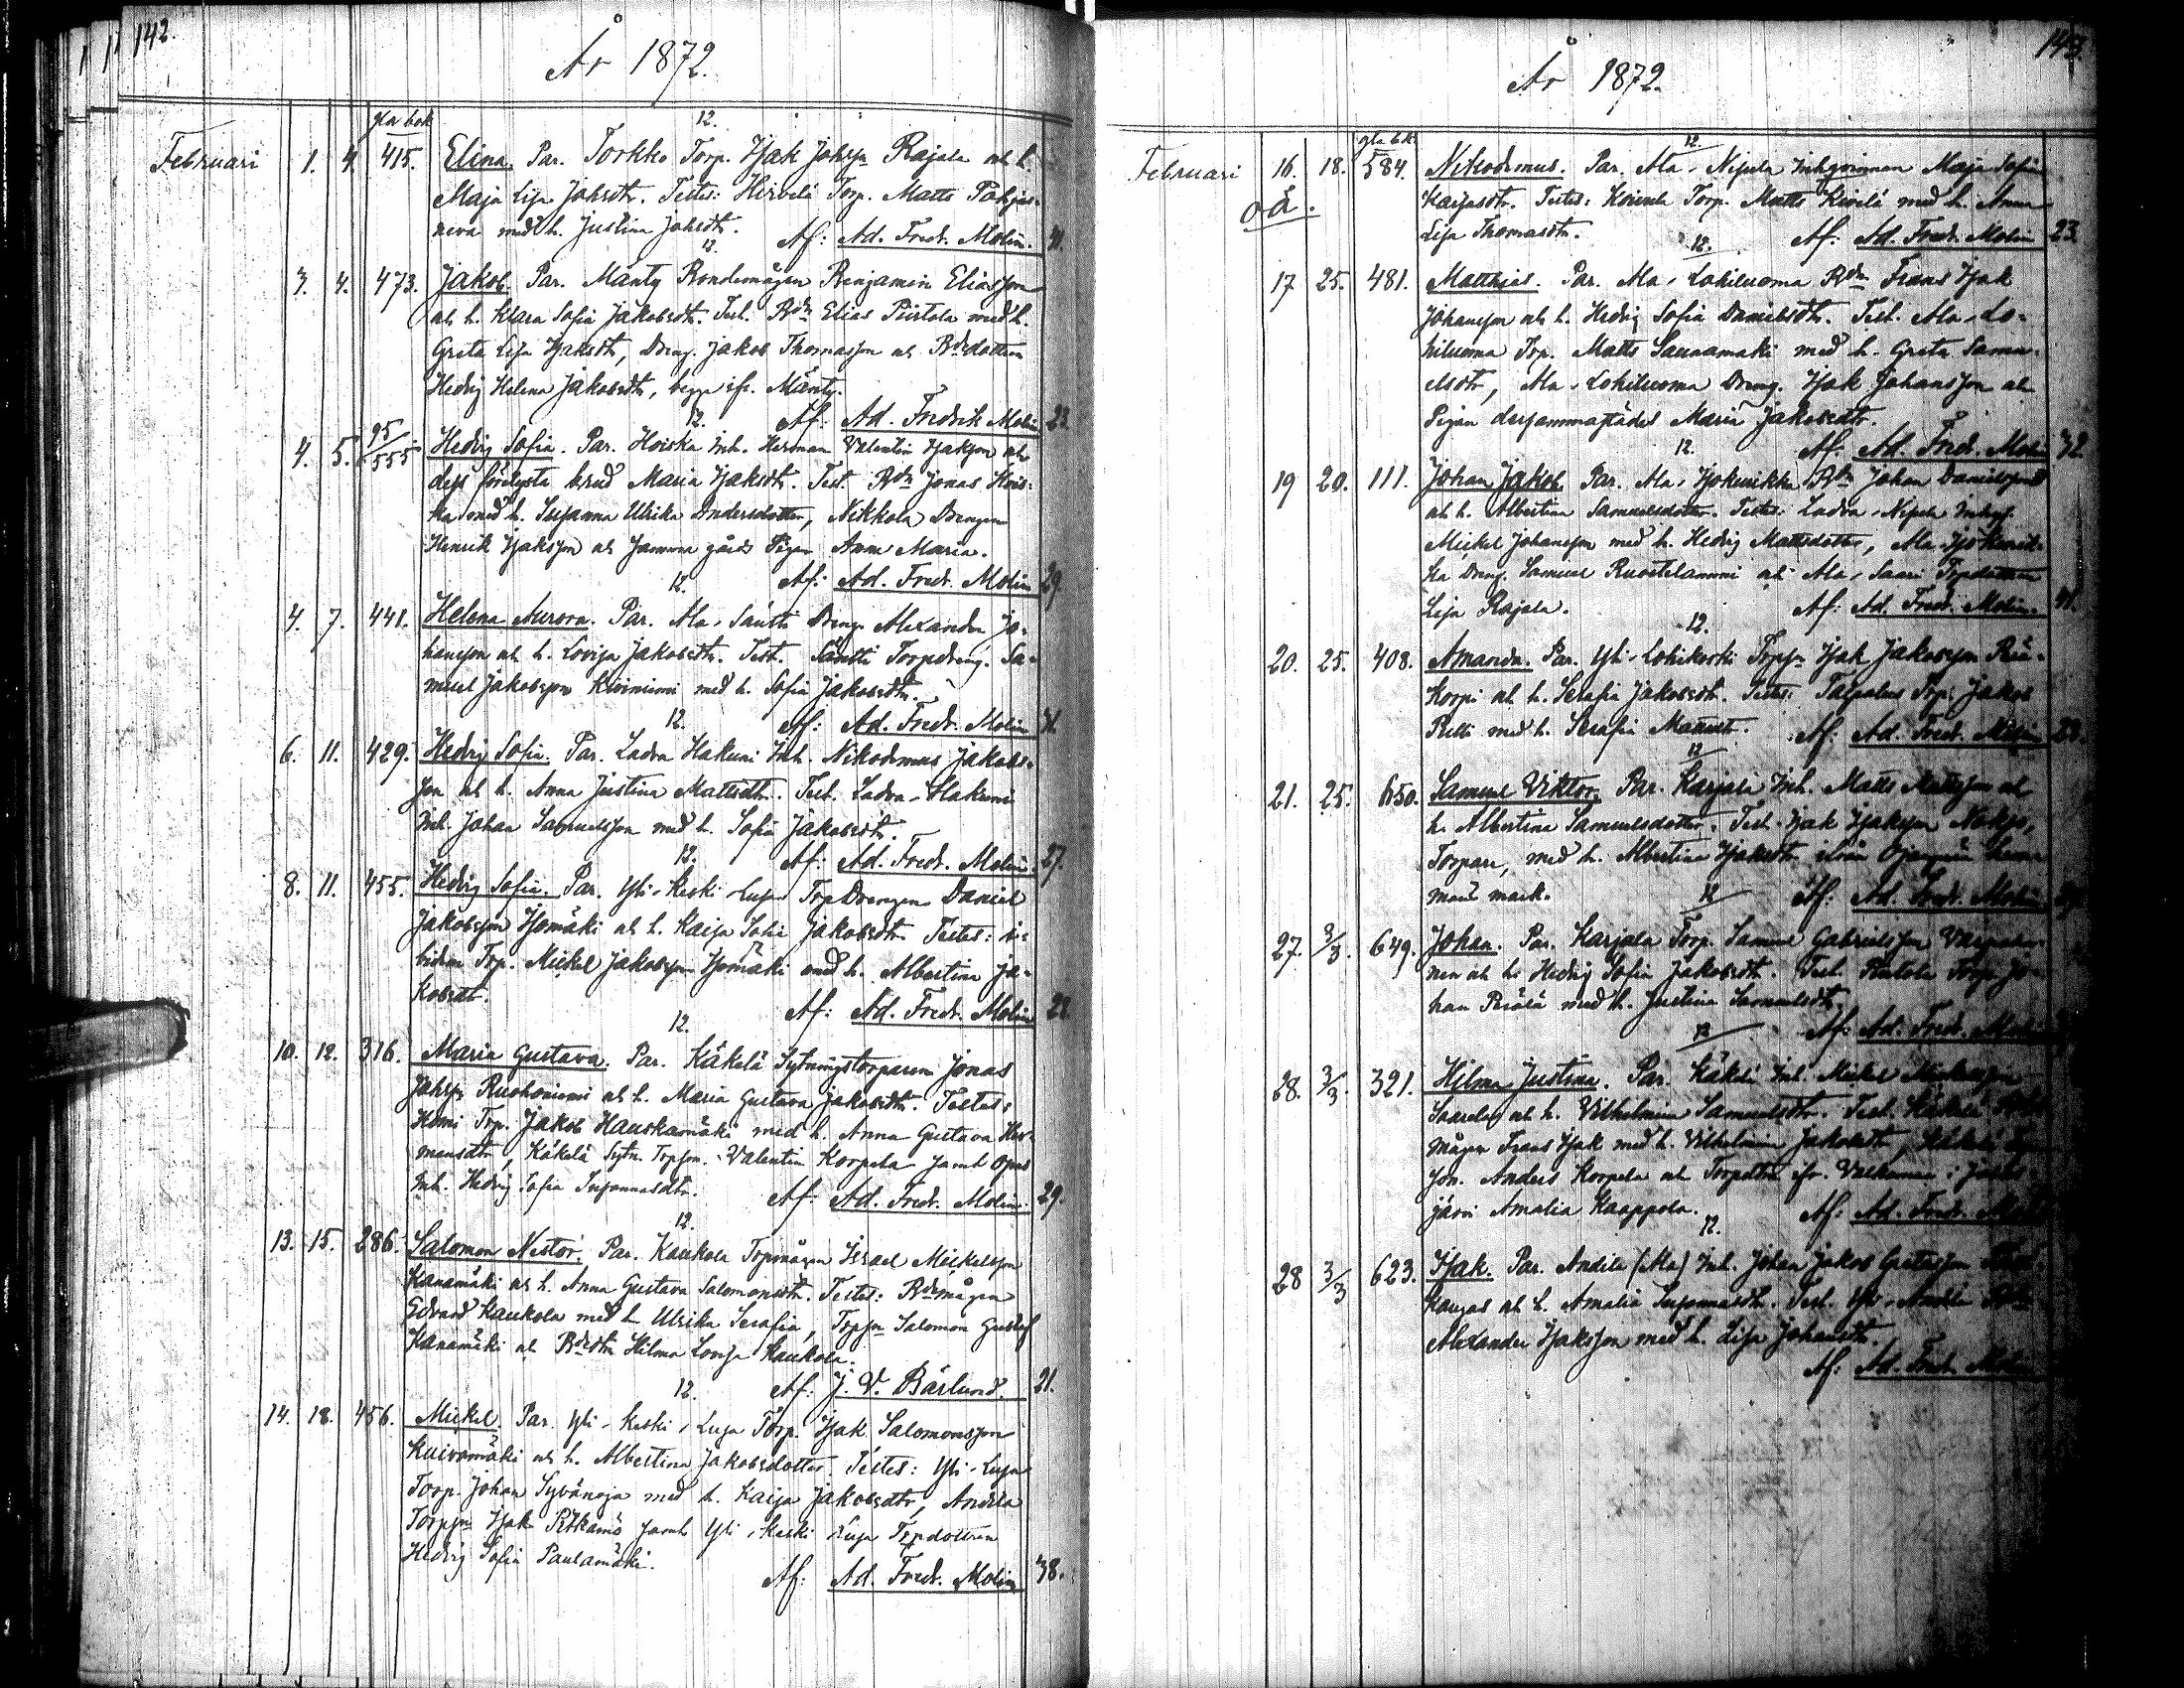 142.
År 1872.
gla bok
12.
Februari 1. 4. 415. Elina. Par. Torkko Torp. Isak Johssn Rajala och h.
Maja Lisa Johsdtr. Testes: Hirvelä Torp. Matts
neva med h. Justina Johsdtr.
Af: Ad. Fredr. Molin. 41.
12.
3. 4. 473. Jakob. Par. Mänty Bondemågen Benjamin Eliasson
och h. Klara Sofia Jakobsdtr. Test. Bdn Elias Piirtola med h.
Greta Lisa Isaksdtr, Dreng. Jakob Thomasson och Bdedottern
Hedvig Helena Jakobsdtr, begge ifr. Mänty.
Af: Ad. Fredrik Molin 23.
12.
4. 5. 95/555 Hedvig Sofia. Par. Hoiska Inh. Herman Valentin Isaksson och
dess förelysta brud Maria Isaksdtr. Test. Bdn Jonas Hois-
ka med h. Susanna Ulrika Andersdotter, Nikkola Drengen
Henrik Isaksson och samma gårds Pigan Anna Maria.
Af: Ad. Fredr. Molin 29
12.
4. 7. 441. Helena Aurora. Par. Ala-Säntti Dreng Alexander Jo-
hansson och h. Lovisa Jakobsdtr. Test. Säntti Torpdreng. Sa-
muel Jakobsson Kiviniemi med h. Sofia Jakobsdtr.
Af: Ad. Fredr. Molin
12.
6. 11. 429. Hedvig Sofia. Par. Ladva Hakuni Inh. Nikodemus Jakobs-
son och h. Anna Justina Mattsdtr. Test. Ladva-Hakuni
Inh. Johan Samuelsson med h. Sofia Jakobsdtr.
Af: Ad. Fredr. Molin. 27.
12.
8. 11. 455. Hedvig Sofia. Par. Yli-Keski-Luga TorpDrengen Daniel
Jakobsson Isomäki och h. Kaisa Sofia Jakobsdtr. Testes: i-
bidem Trp. Mickel Jakobsson Isomäki med h. Albertina Ja-
kobsdtr.
Af: Ad. Fredr. Molin 22.
12.
10. 12. 316. Maria Gustava. Par. Käkelä Sytningstorparen Jonas
Johssn Ruohoniemi och h. Maria Gustava Jakobsdtr. Testes:
Homi Trp. Jakob Hauskamäki med h. Anna Gustava Her-
mansdtr, Käkelä Sytn. Torpson. Valentin Korpela samt
Inh. Hedvig Sofia Susannasdtr.
Af: Ad. Fredr. Molin. 29.
12.
13. 15. 286. Salomon Nestor. Par. Kaukola Torpmågen Israel Mickelsson
Kanamäki och h. Anna Gustava Salomonsdtr. Testes: Bdemågen
Edvard Kaukola med h. Ulrika Serafia, Torpson Salomon Gustaf
Kanamäki och Bdedtr Hilma Lovisa Kaukola.
Af: J. V. Bärlund. 21.
12.
14. 18. 456. Mickel. Par. Yli-Keski-Luga Torp. Isak Salomonsson
Kuivamäki och h. Albertina Jakobsdotter. Testes: Yli-Luga
Torp. Johan Syvänoja med h. Kaisa Jakobsdtr, Andila
Torpson Isak Pitkämö samt Yli-Keski-Luga Trpdottern
Hedvig Sofia Paulamäki.
Af: Ad. Fredr. Molin 38.
143.
År 1872.
gla bok
12.
Februari 16. 18. 584. Nikodemus. Par. Ala-Nisula Inhqvinnan Maja Sofia
oä. Kaisasdtr. Testes: Torp. Matts Kivelä med h. Anna
Lisa Thomasdtr.
Af: Ad. Fredr. Molin 23.
12.
17 25. 481. Matthias. Par. Ala-Lohiluoma Bdn Frans Isak
Johansson och h. Hedvig Sofia Danielsdtr. Test. Ala-Lo-
hiluoma Trp. Matts Saunamäki med h. Greta Samu-
elsdtr, Ala-Lohiluoma Dreng. Isak Johansson och
Pigan dersammastädes Maria Jakobsdtr.
Af: Ad. Fredr. Molin 32
12.
19 20. 111. Johan Jakob. Par. Ala-Jokuikka Bdn Johan Danielsson
och h. Albertina Samuelsdotter. Testes: Ladva-Nisula
Mickel Johansson med h. Hedvig Mattsdotter, Ala-
ka Dreng. Samuel Ruostelammi och Ala-Saari Trpdottern
Lisa Rajala.
Af: Ad. Fredr. Molin. 41.
12.
20. 25. 408. Amanda. Par. Yli-Lohikoski Trpsn Isak Jakobsson
korpi och h. Serafia Jakobsdtr. Testes: Trp. Jakob
med h. Serafia Mattsdtr.
Af: Ad. Fredr. Molin 28.
12
21. 25. 650. Samuel Viktor. Par. Karjala Inh. Matts Mattsson och
h. Albertina Samuelsdotter. Test. Isak Isaksson
Torpare, med h. Albertina Isaksdtr ifrån
mark.
Af: Ad. Fredr. Molin
12
27. 3/3. 649. Johan. Par. Karjala Torp. Samuel Gabrielsson
nen och h. Hedvig Sofia Jakobsdtr. Test. Torp. Jo-
han med h. Justina Samuelsdtr.
Af: Ad. Fredr. Molin
12
28. 3/3. 321. Hilma Justina. Par. Käkelä Inh. Mickel
och h. Vilhelmina Samuelsdtr. Test. Käkelä
mågen Frans Isak med h. Vilhelmina Jakobsdtr, Käkelä
son. Anders Korpela och Torpdtr ifr. i
järvi Amalia Kaappola.
Af: Ad. Fredr. Molin
12.
28 3/3 623. Isak. Par. Andila (Ala) Inh. Johan Jakob Gretasson
kangas och h. Amalia Susannasdtr. Test. Yli-Andila
Alexander Isaksson med h. Lisa Johansdtr.
Af: Ad. Fredr. Molin